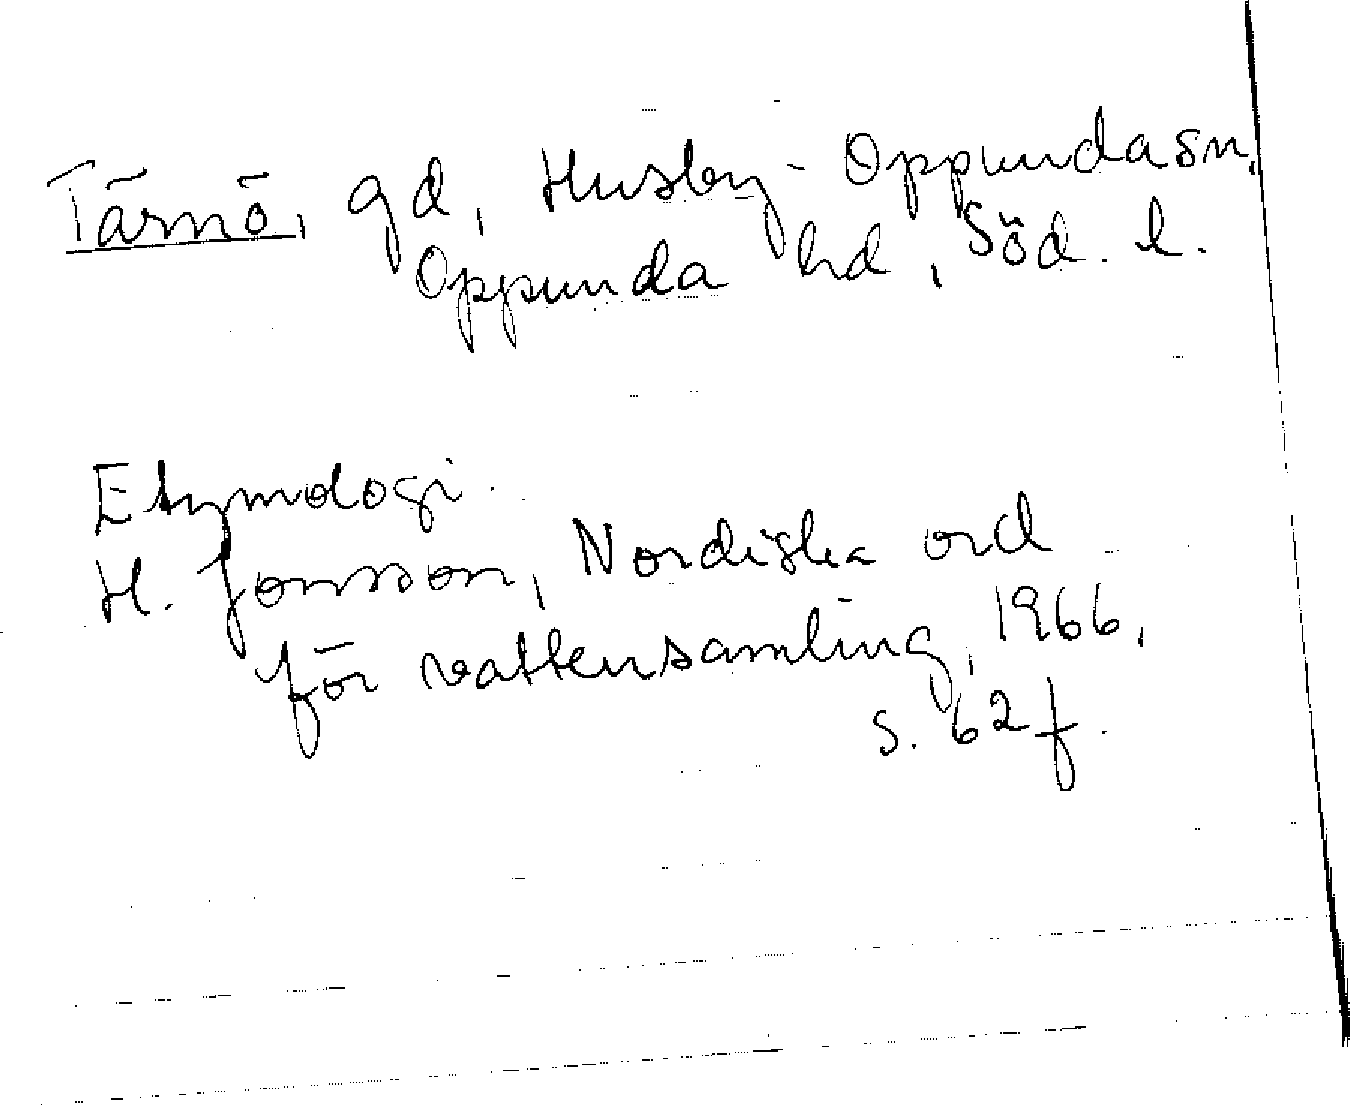 Tärnö, gd, Husby-Oppunda sn,
Oppunda hd, Söd. l.
Etymologi.
H. Jonsson, Nordiska ord
för vattensamling, 1966,
s. 62 f.